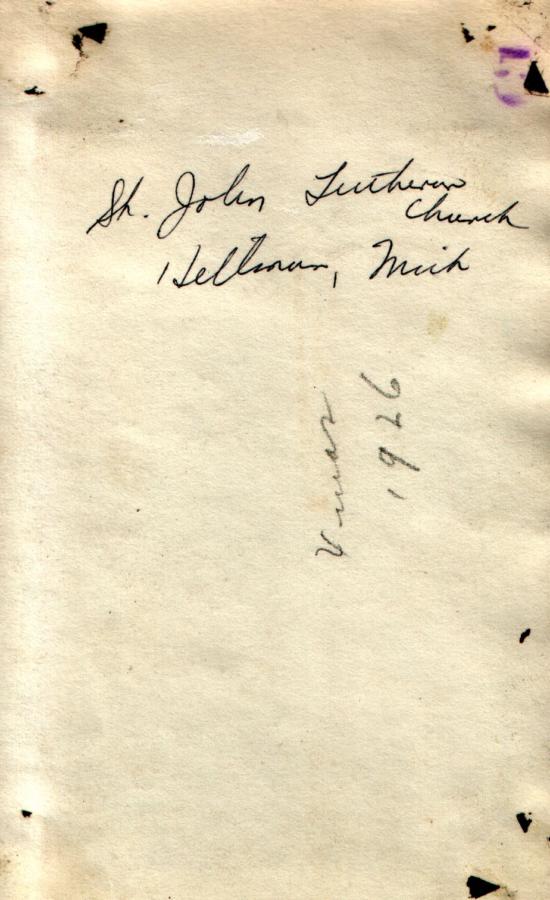 St. John Lutheran
Church
Hellman, Mich
1926